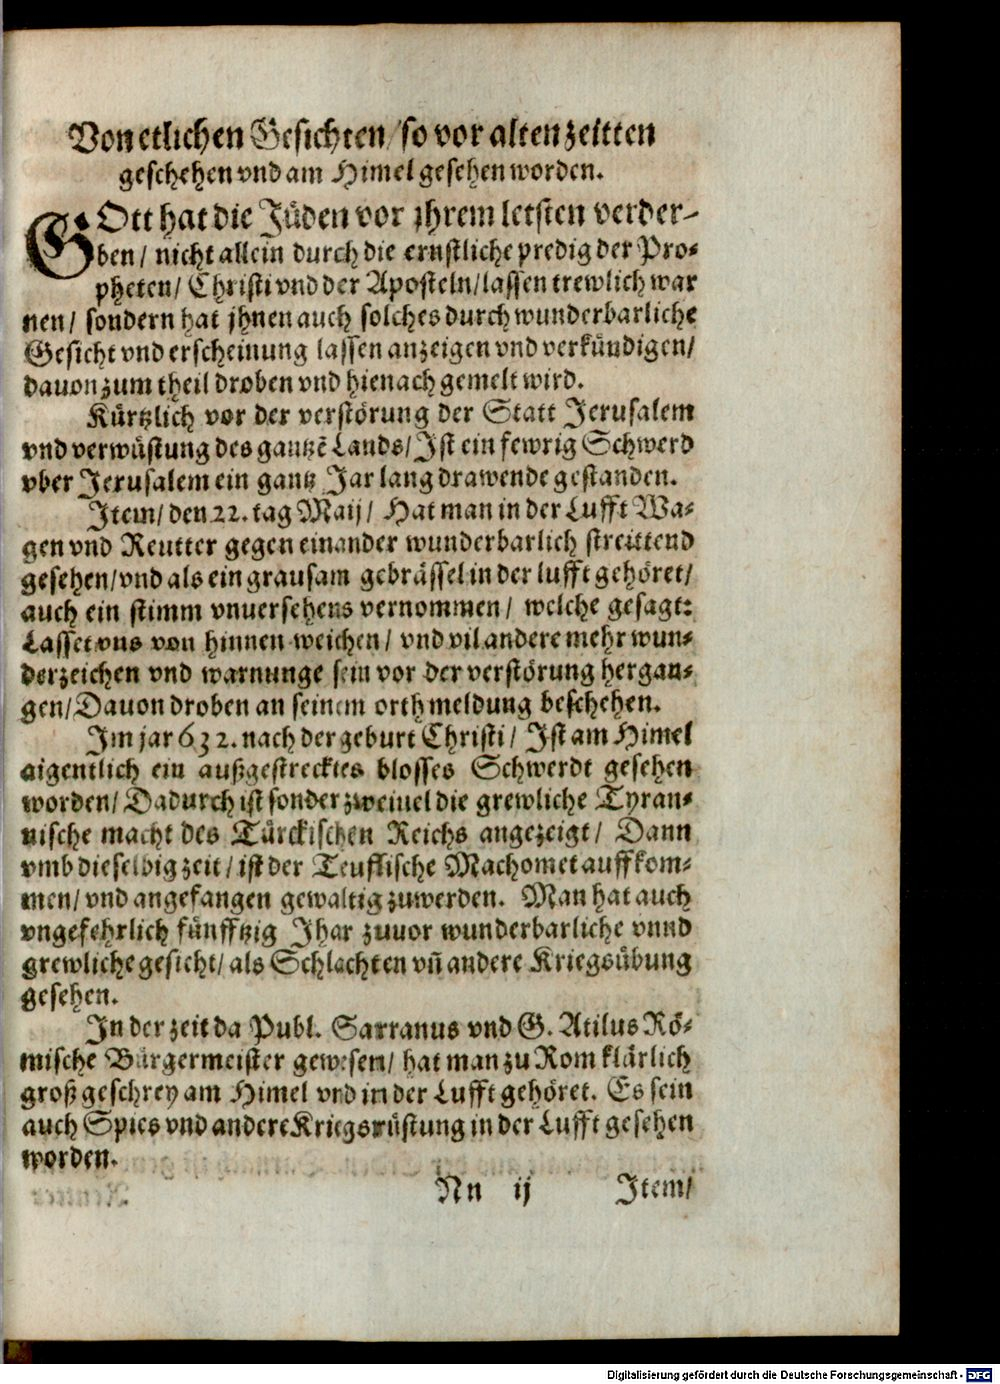 Von etlichen Gesichten/ so vor alten zeitten
geschehen vnd am Himel gesehen worden.
GOtt hat die Jüden vor jhrem letsten verder-
ben/ nicht allein durch die ernstliche predig der Pro-
pheten/ Christi vnd der Aposteln/ lassen trewlich war
nen/ sondern hat jhnen auch solches durch wunderbarliche
Gesicht vnd erscheinung lassen anzeigen vnd verkündigen/
dauon zum theil droben vnd hienach gemelt wird.
Kürtzlich vor der verstörung der Statt Jerusalem
vnd verwüstung des gantzē Lands/ Jst ein fewrig Schwerd
vber Jerusalem ein gantz Jar lang drawende gestanden.
Jtem/ den 22. tag Maij/ Hat man in der Lufft Wa-
gen vnd Reutter gegen einander wunderbarlich streittend
gesehen/ vnd als ein grausam gebrässel in der lufft gehöret/
auch ein stimm vnuersehens vernommen/ welche gesagt:
Lasset vns von hinnen weichen/ vnd vil andere mehr wun-
derzeichen vnd warnunge sein vor der verstörung hergan-
gen/ Dauon droben an seinem orth meldung beschehen.
Jm jar 632. nach der geburt Christi/ Jst am Himel
aigentlich ein außgestrecktes blosses Schwerdt gesehen
worden/ Dadurch ist sonder zweiuel die grewliche Tyran-
nische macht des Türckischen Reichs angezeigt/ Dann
vmb dieselbig zeit/ ist der Teuflische Machomet auffkom-
men/ vnd angefangen gewaltig zuwerden. Man hat auch
vngefehrlich fünfftzig Jhar zuuor wunderbarliche vnnd
grewliche gesicht/ als Schlachten vñ andere Kriegsübung
gesehen.
Jn der zeit da Publ. Sarranus vnd G. Atilus Rö-
mische Bürgermeister gewesen/ hat man zu Rom klärlich
groß geschrey am Himel vnd in der Lufft gehöret. Es sein
auch Spies vnd andere Kriegsrüstung in der Lufft gesehen
worden.
Nn ij Jtem/
Digitalisierung gefördert durch die Deutsche Forschungsgemeinschaft - DFG